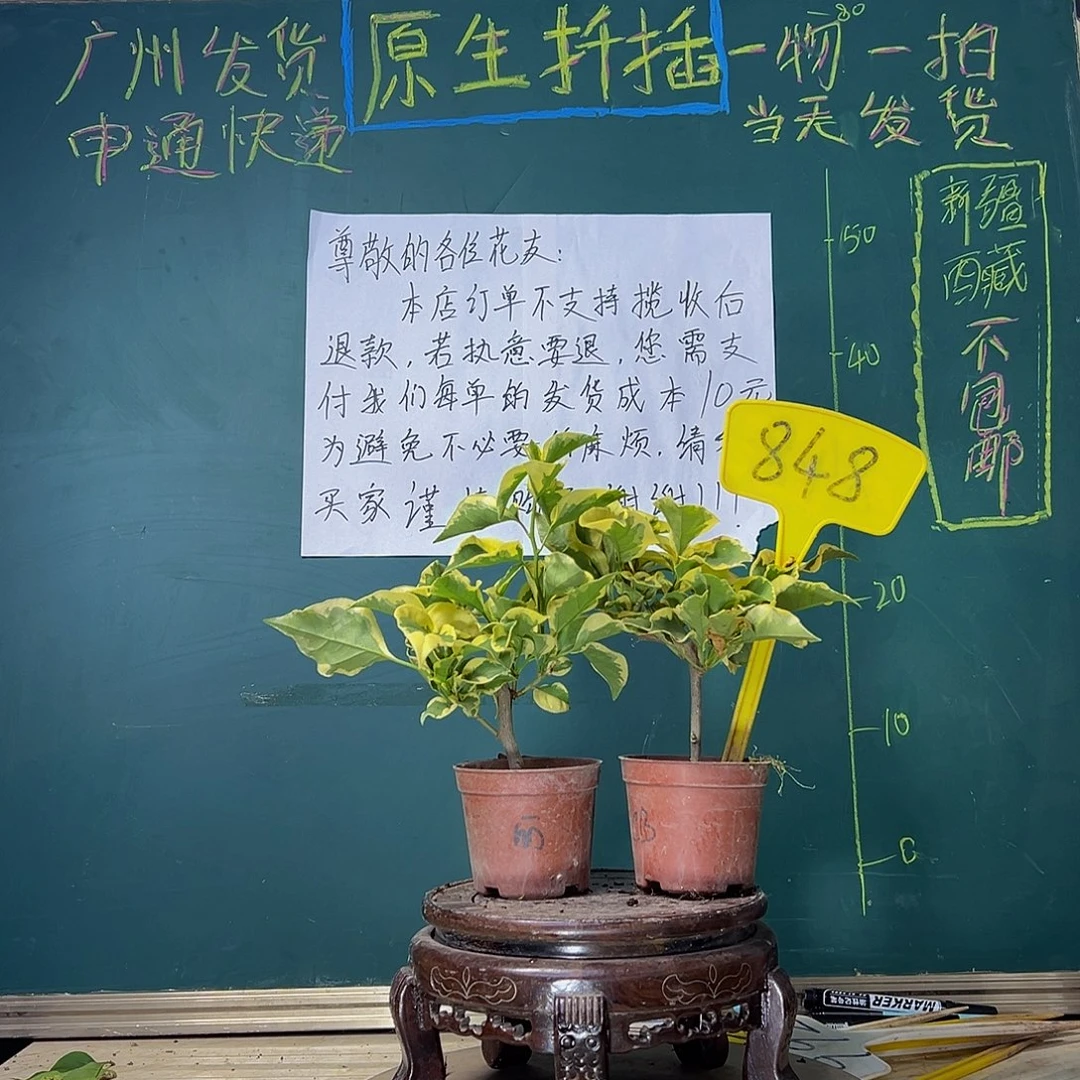 广州发货
申通快递
原生扦插
一物一拍
当天发货
尊敬的各位花友:
本店订单不支持揽收后
退款,若执意要退,您需支
付我们每单的发货成本10元
为避免不必要 麻烦,请
买家谨 谢谢!!!
848
新疆
西藏
不包邮
50
40
20
10
0
MARKER